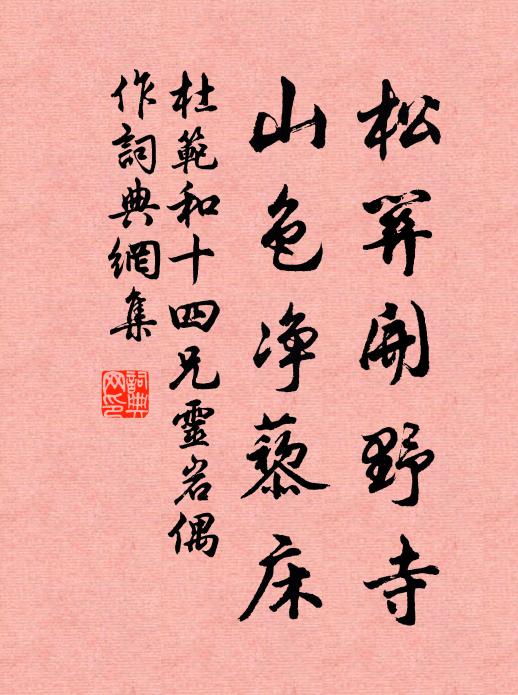 松箅開野寺
山色净藜床
杜範和十四兄靈岩偶
作詞典網集
詞典
网印